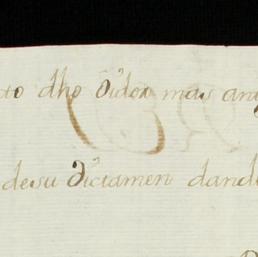 to dho Oidor mas an
de su dictamen dand